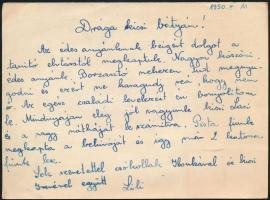 1950. V. 11
Drága kicsi bátyám!
Az édes anyámnak beigért dolgot a
tanító elvtárstól megkaptuk. Nagyon köszöni
édes anyánk. Borzasztó nehezen tud megnyu-
godni és ezért ne haragudj reá hogy nem
ír. Az egész családi levelezést én bonyolítom
le. Mindnyájan elég jól vagyunk kicsi Laci
és a nagy nátháját leszámítva. Pista fiunk
megkapta a behívóját és így már 2 katona
fiunk lesz.
Sok szeretettel csókollak Ilonkával és kicsi
Imrével együtt Lili